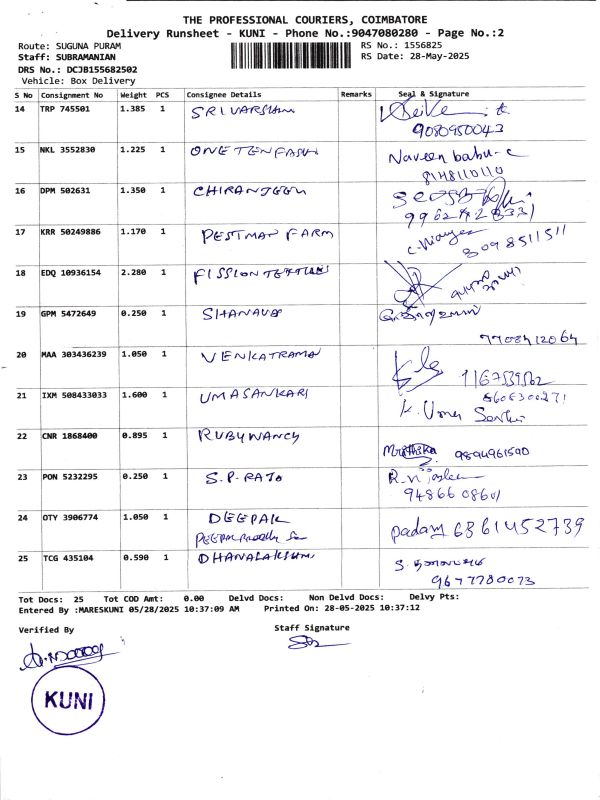 THE PROFESSIONAL COURIERS, COIMBATORE
Delivery Runsheet - KUNI - Phone No.:9047080280 - Page No.:2
Route: SUGUNA PURAM RS No.: 1556825
Staff: SUBRAMANIAN RS Date: 28-May-2025
DRS No.: DCJB155682502
Vehicle: Box Delivery
S No Consignment No Weight PCS Consignee Details Remarks Seal & Signature
14 TRP 745501 1.385 1 SRIVARSHINI
9080950043
15 NKL 3552830 1.225 1 ONE TEN FASHI Naveen babu-c
8148110110
16 DPM 502631 1.350 1 CHIRANJEEVI
17 KRR 50249886 1.170 1 PESTMAN FARM
8098511511
18 EDQ 10936154 2.280 1 FISSION TEXTILES
19 GPM 5472649 0.250 1 SHANAVAS
7708412064
20 MAA 303436239 1.050 1 VENKATRAMAN
21 IXM 508433033 1.600 1 UMASANKARI
K. Uma
22 CNR 1868400 0.895 1 RUBYNANCY
9894961590
23 PON 5232295 0.250 1 S.P. RAJO
9486608601
24 OTY 3906774 1.050 1 DEEPAK Padam 6361452739
DEEPAK
25 TCG 435104 0.590 1 DHANALAKSHMI
9677780073
Tot Docs: 25 Tot COD Amt: 0.00 Delvd Docs: Non Delvd Docs: Delvy Pts:
Entered By :MARESKUNI 05/28/2025 10:37:09 AM Printed On: 28-05-2025 10:37:12
Verified By Staff Signature
KUNI